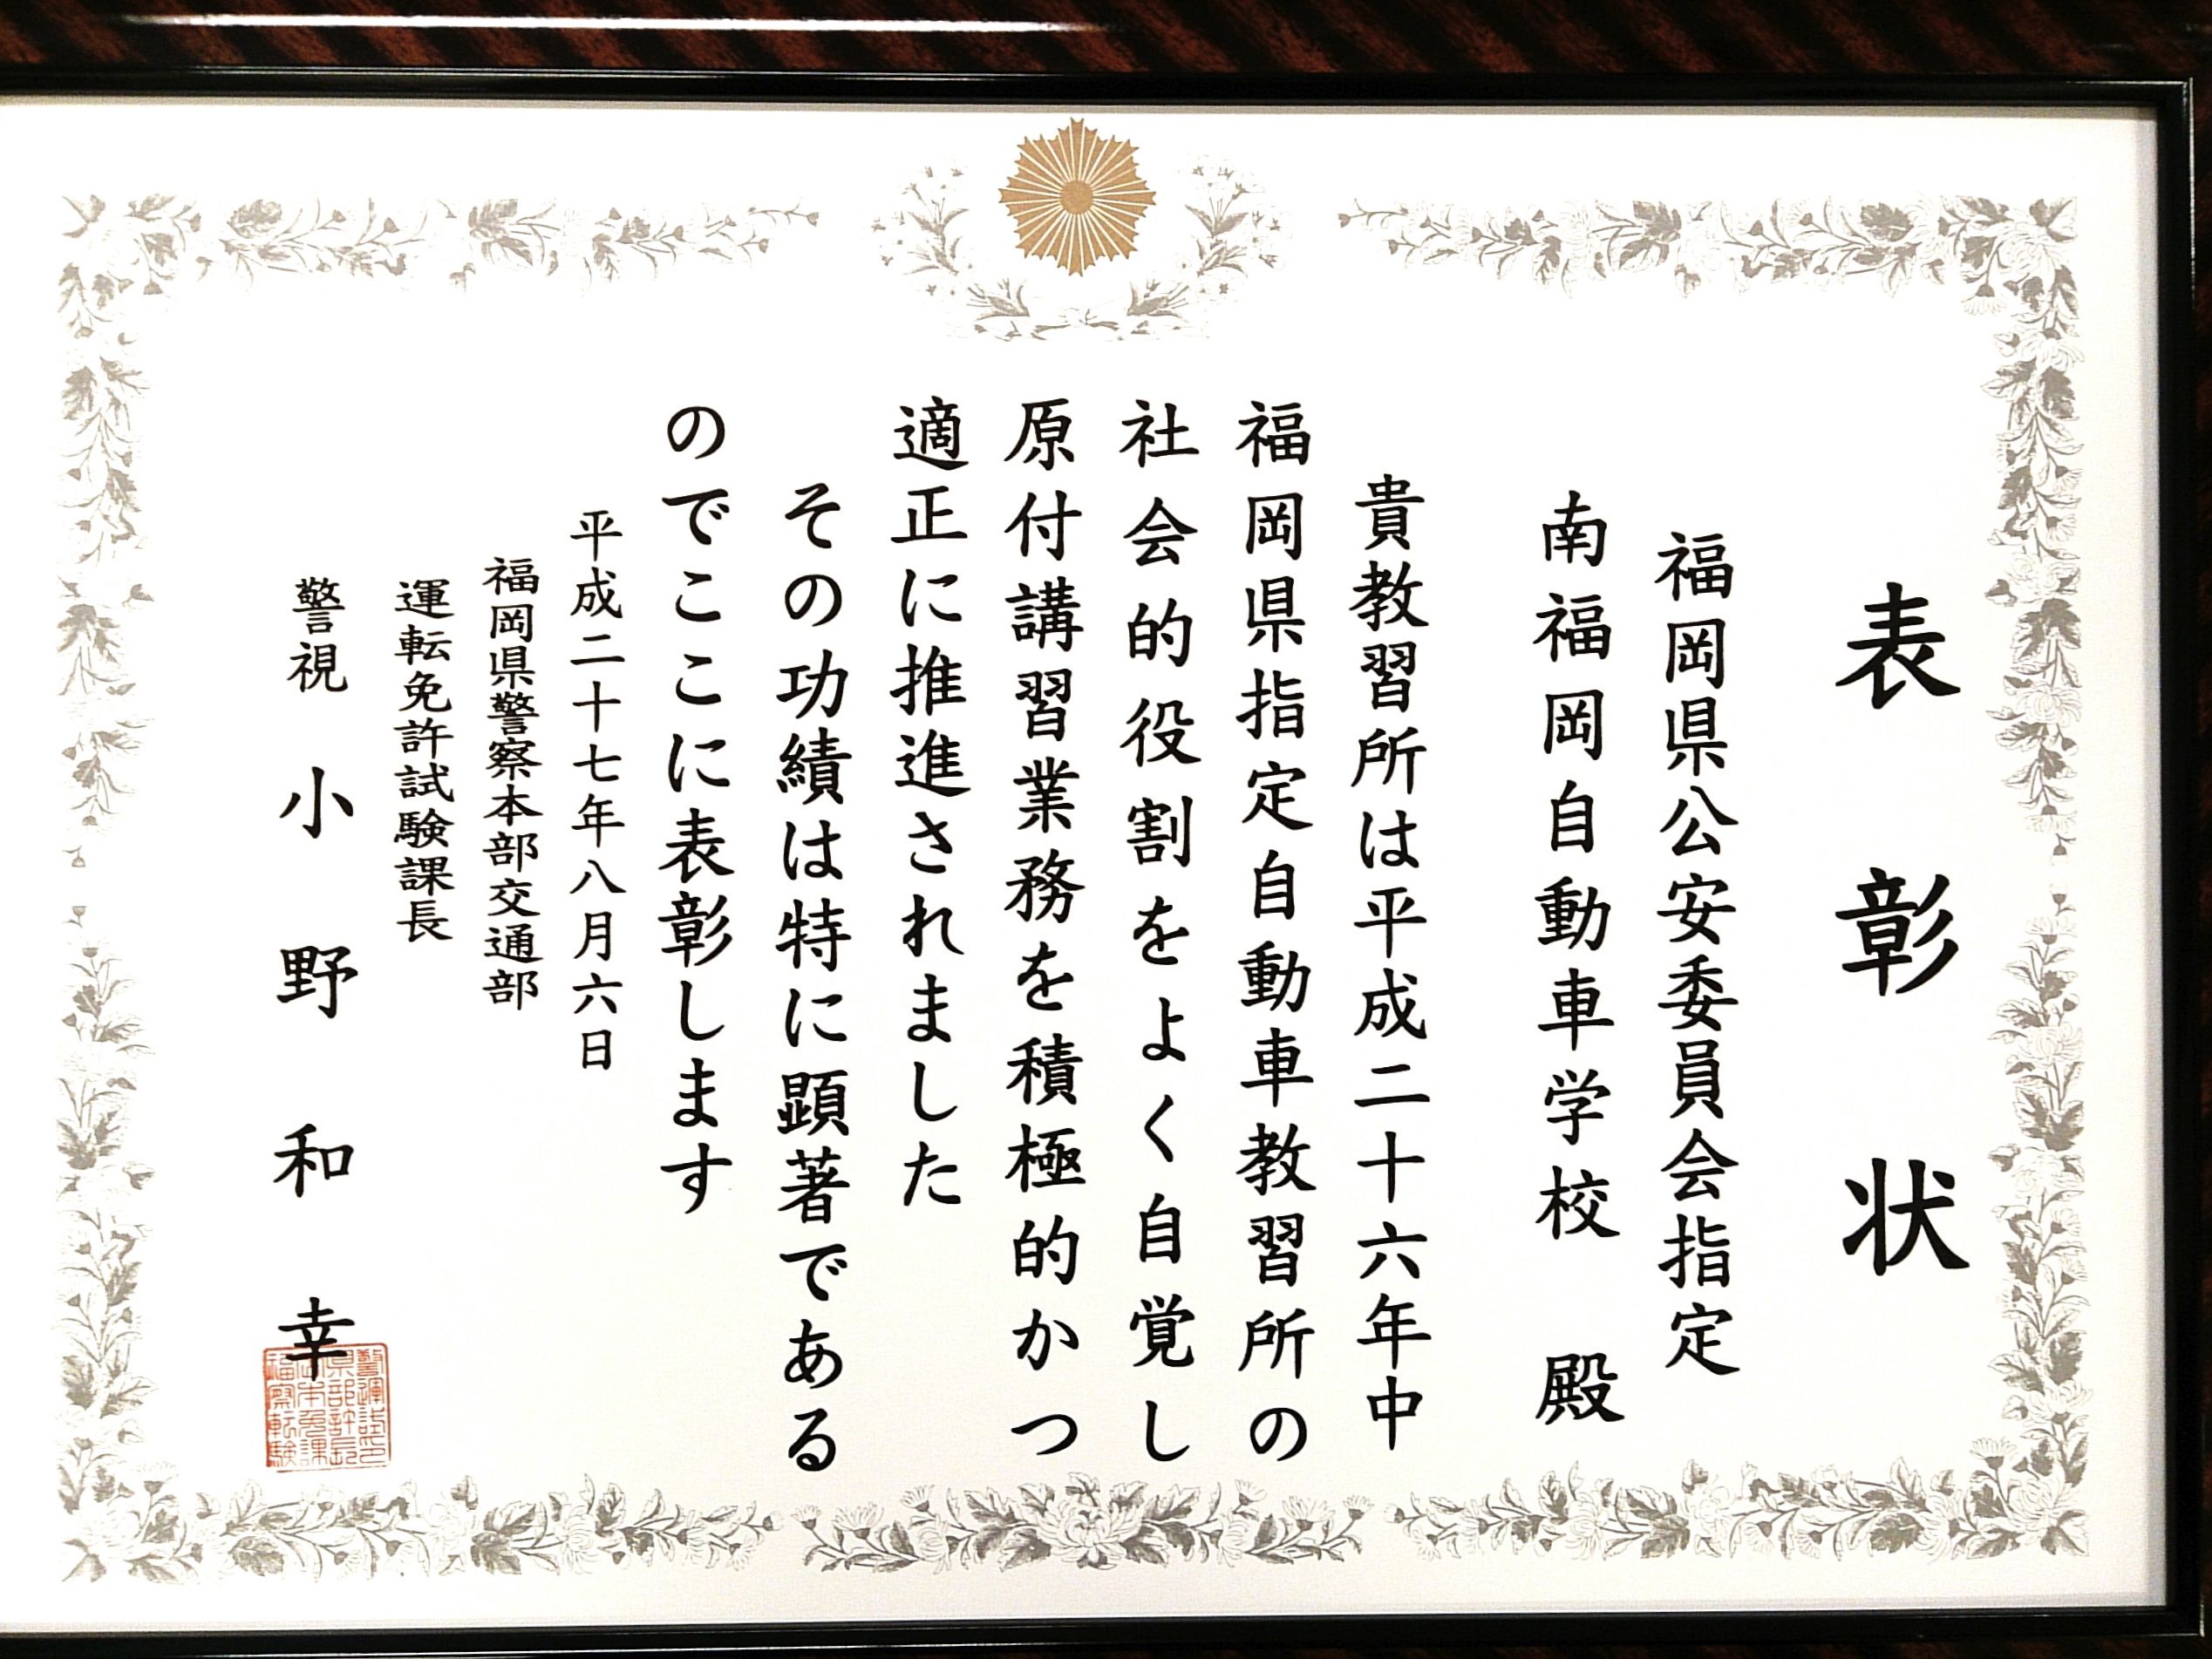 表彰状
福岡県公安委員会指定
南福岡自動車学校 殿
貴教習所は平成二十六年中
福岡県指定自動車教習所の
社会的役割をよく自覚し
原付講習業務を積極的かつ
適正に推進されました
その功績は特に顕著である
のでここに表彰します
平成二十七年八月六日
福岡県警察本部交通部
運転免許試験課長
警視 小野和幸